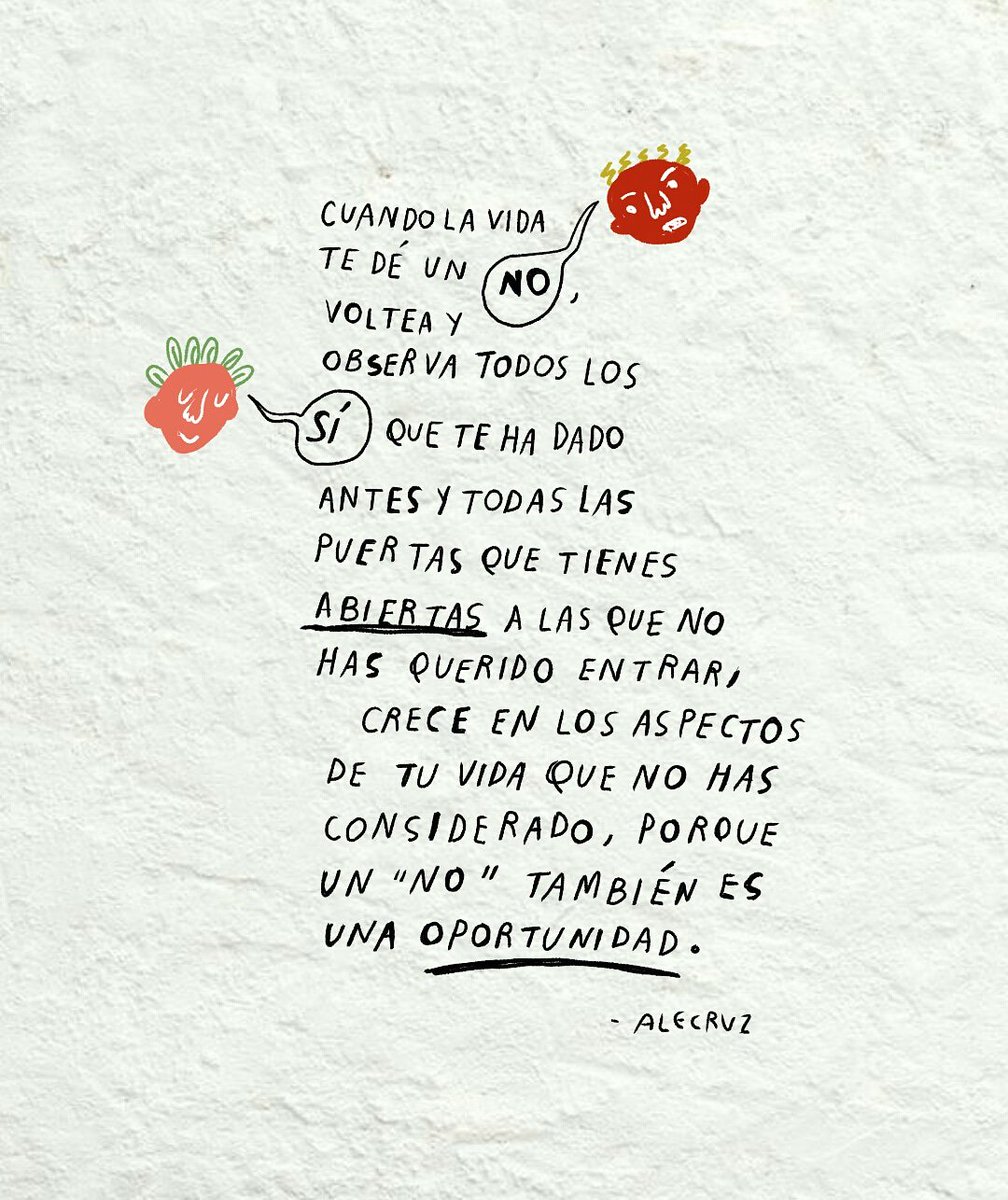 CUANDO LA VIDA
TE DÉ UN NO,
VOLTEA Y
OBSERVA TODOS LOS
SÍ QUE TE HA DADO
ANTES Y TODAS LAS
PUERTAS QUE TIENES
ABIERTAS A LAS QUE NO
HAS QUERIDO ENTRAR,
CRECE EN LOS ASPECTOS
DE TU VIDA QUE NO HAS
CONSIDERADO, PORQUE
UN "NO" TAMBIÉN ES
UNA OPORTUNIDAD.
- ALECRUZ